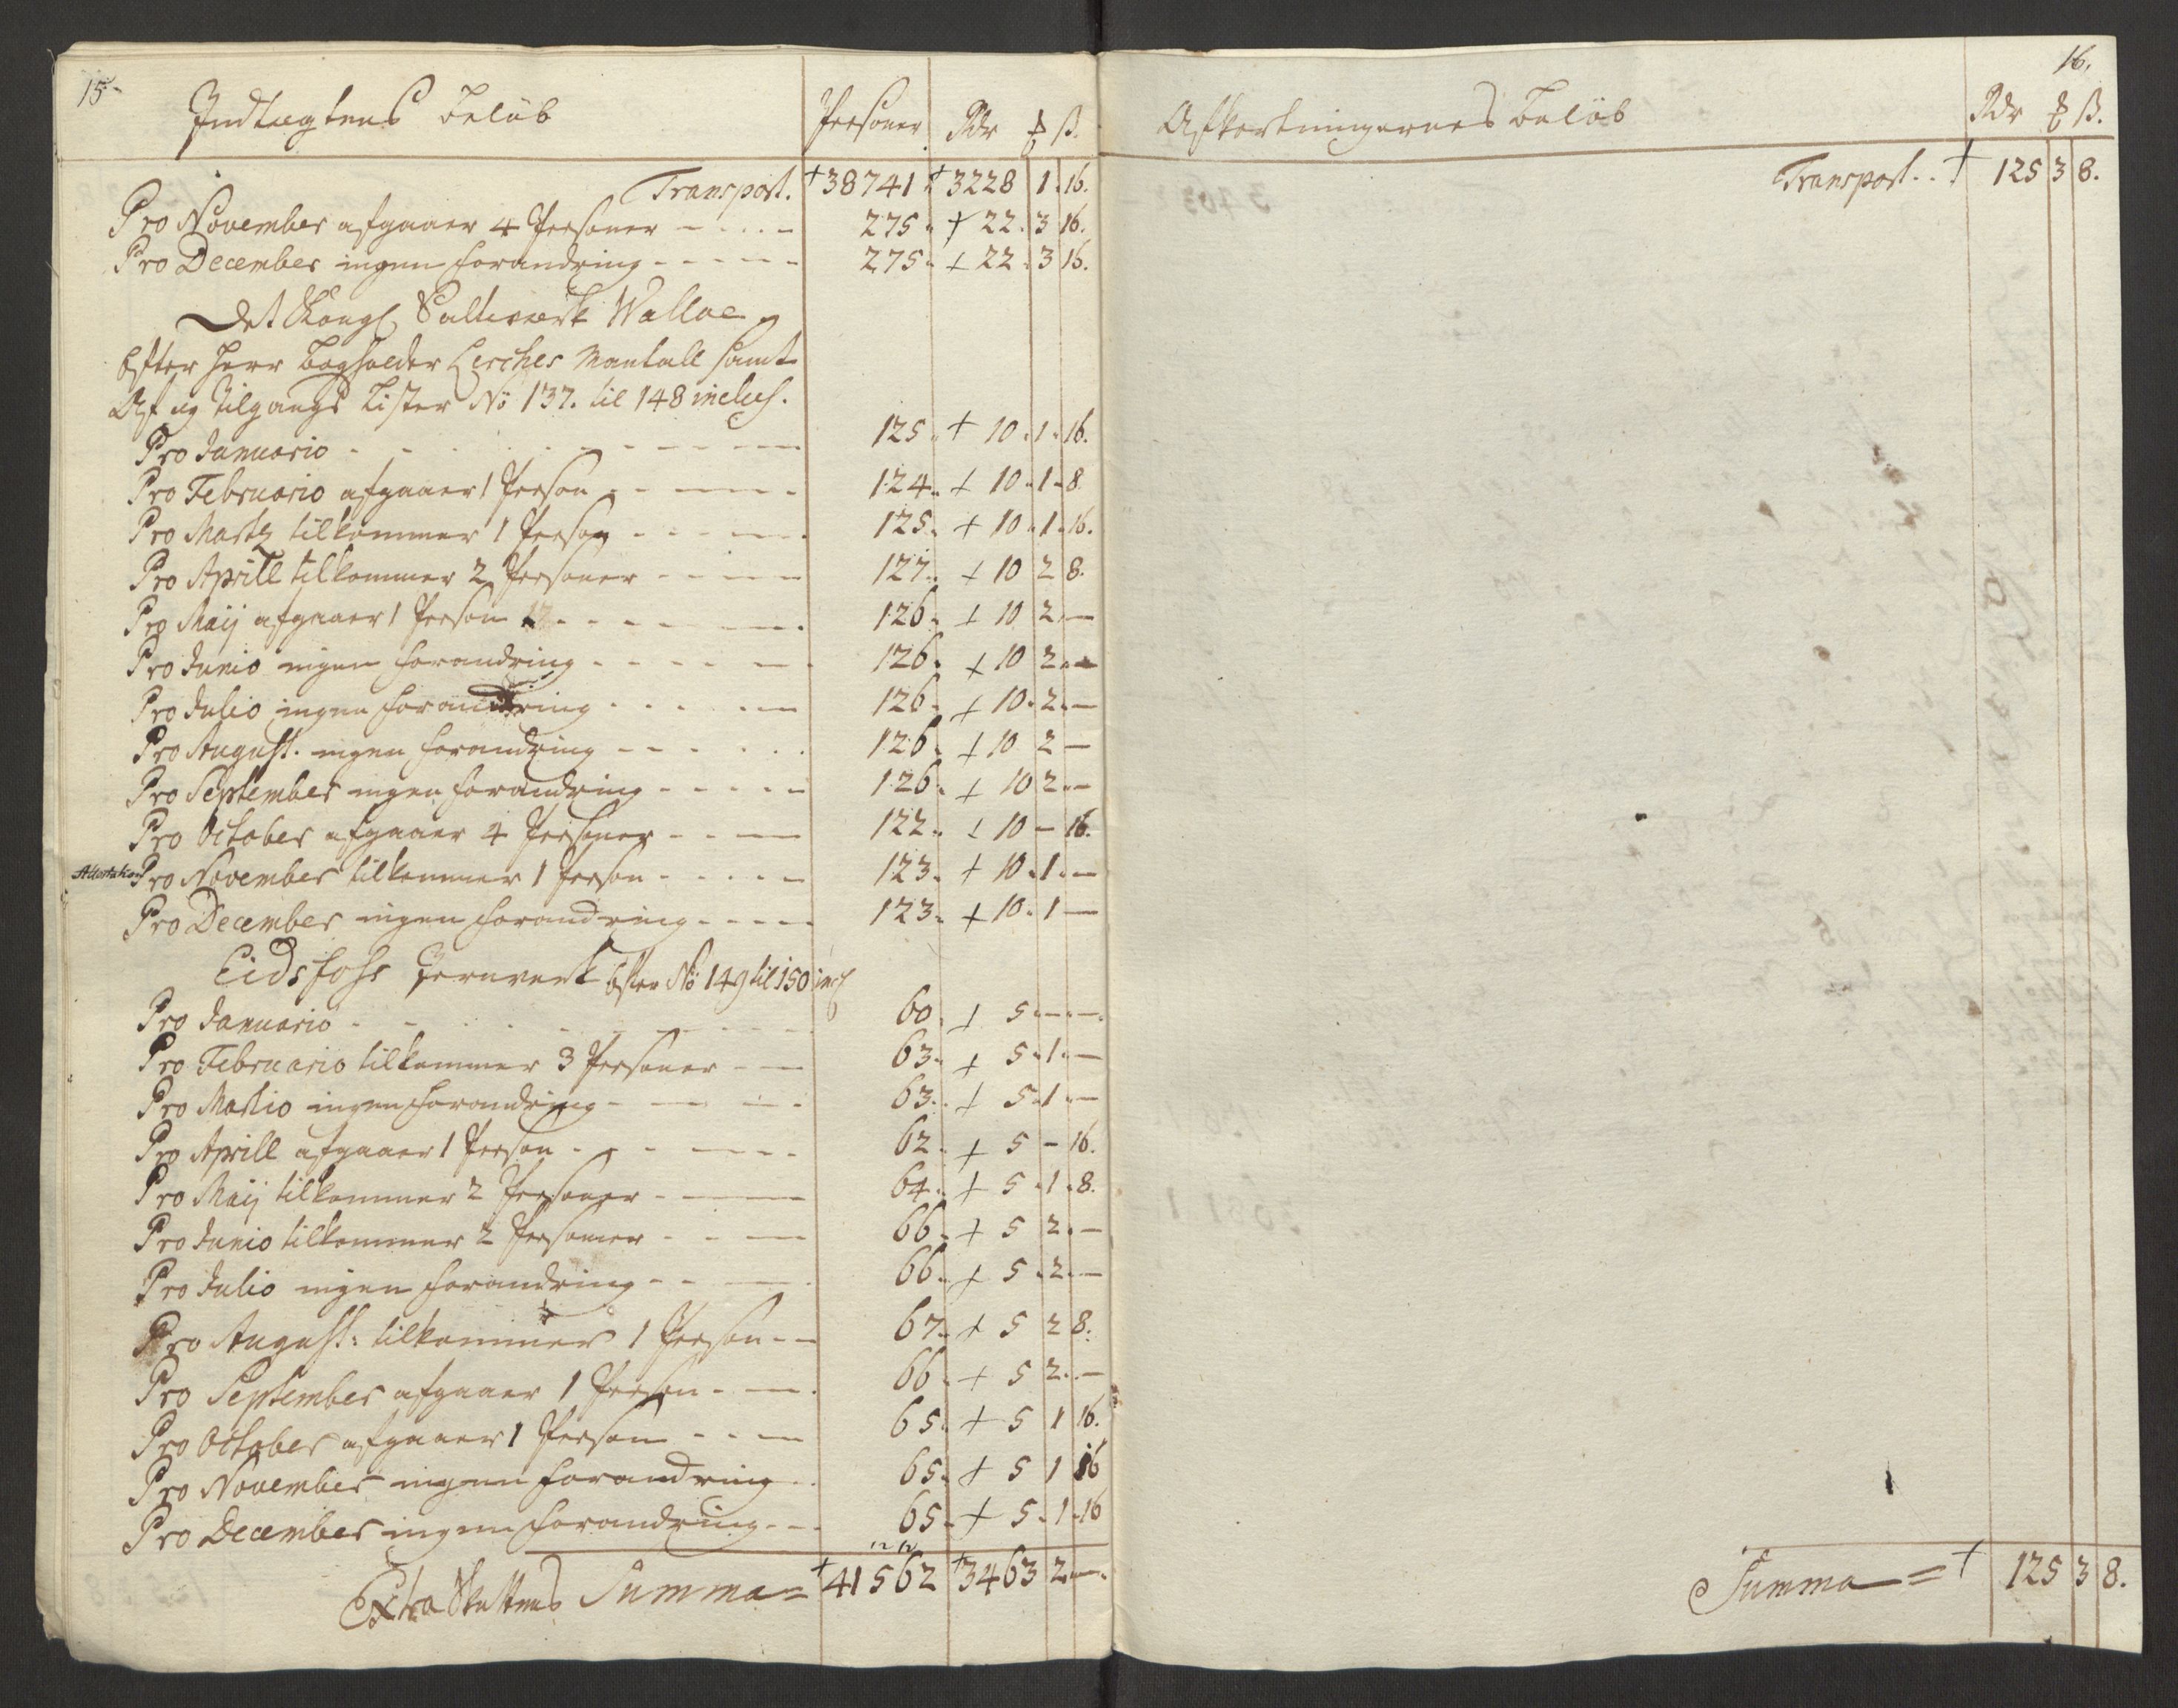 15.
Indtægtens Beløb Personer Rdr ß.
Transport. 38741. 3228 1. 16.
Pro November afgaaer 4 Personer 275. 22. 3 16.
Pro December ingen forandring 275. 22. 3 16.
Det Kongl. Saltværk Walløe
Efter Herr Bogholder Lerches Mantall samt
Af og Tilgangs Lister No 137. til 148 inclus.
Pro Januario 125. 10. 1. 16.
Pro Februario afgaaer 1 Person 124. 10. 1. 8
Pro Martz tilkommer 1 Person 125. 10. 1. 16.
Pro Aprill tilkommer 2 Personer 127. 10 2 8.
Pro Maij afgaaer 1 Person 126. 10 2. —
Pro Junio ingen forandring 126. 10 2. —
Pro Julio ingen forandring 126. 10. 2. —
Pro August. ingen forandring 126. 10 2 —
Pro September ingen forandring 126. 10 2. —
Pro October afgaaer 4 Personer 122. 10 — 16.
Pro November tilkommer 1 Person 123. 10. 1. —
Pro December ingen forandring 123. 10. 1 —
Eidsfoss Jernverk efter No 149 til 150 incl
Pro Januario 60. 5. — —.
Pro Februario tilkommer 3 Personer 63. 5. 1. —
Pro Martio ingen forandring 63. 5. 1 —
Pro Aprill afgaaer 1 Person 62. 5 — 16.
Pro Maij tilkommer 2 Personer 64. 5. 1. 8.
Pro Junio tilkommer 2 Personer 66. 5 2. —
Pro Julio ingen forandring 66. 5. 2. —
Pro August: tilkommer 1 Person 67. 5 2 8.
Pro September afgaaer 1 Person 66. 5 2. —
Pro October afgaaer 1 Person 65. 5 1 16.
Pro November ingen forandring 65. 5 1 16
Pro December ingen forandring 65. 5. 1. 16
Extra Skattens Summa = 41562 3463 2 —.
16.
Afkortningernes Beløb Rdr ß.
Transport 125 3 8.
Summa = 125 3 8.